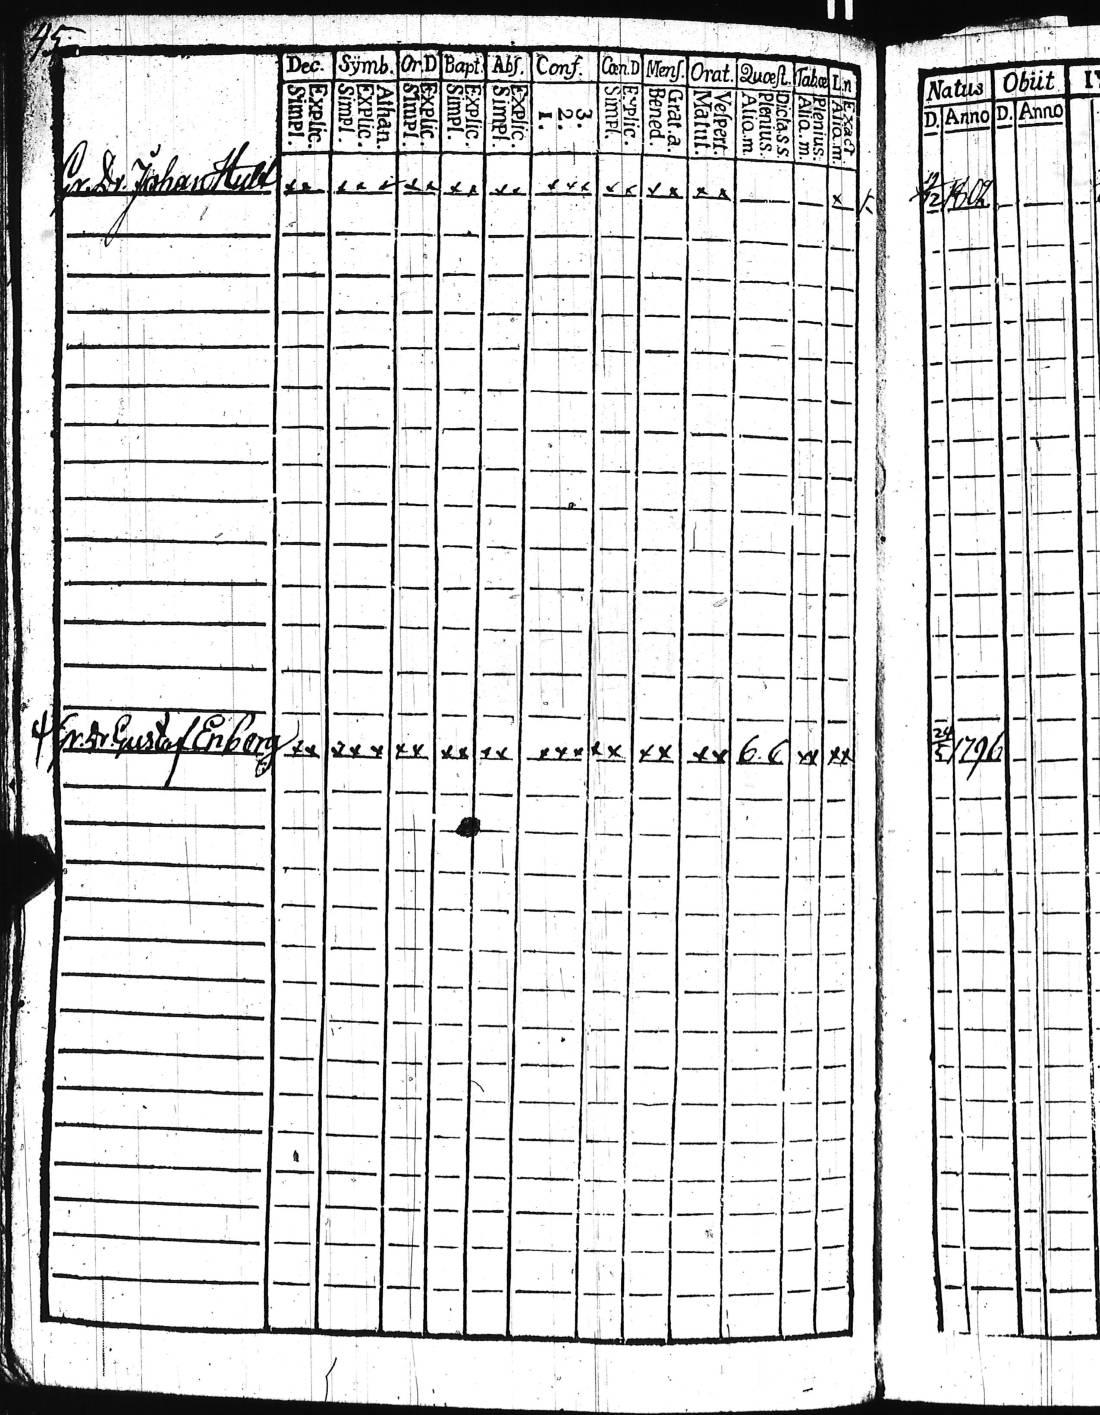 45.
Dec. Sÿmb. Or.D Bapt. Abſ. Conf. Cœn.D Menſ. Orat. Quœſt. Tabœ L.n Natus Obiit
Explic. Simpl. Athan. Explic. Simpl. Explic. Simpl. Explic. Simpl. Explic. Simpl. 3. 2. 1. Explic. Simpl. Grat.a Bened. Veſpert. Matut. Dicta.s.s. Plenius. Alio.m Plenius. Alia.m. Exact Alio.m. D. Anno D. Anno
Gr. Dr. Johan Huld x x x x x x x x x x x x x x x x x x x x x x 19/12 1802
4 Gr. Dr Gustaf Enberg x x x x x x x x x x x x x x x x x x x x 6. 6 x x x x 24/5 1796